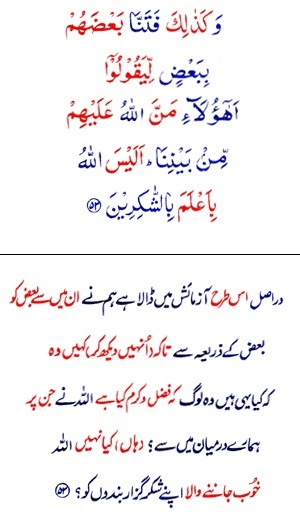 وَكَذٰلِكَ فَتَنَّا بَعْضَهُمْ
بِبَعْضٍ لِّيَقُوْلُوْٓا
اَهٰٓؤُلَآءِ مَنَّ اللّٰهُ عَلَيْهِمْ
مِّنْۢ بَيْنِنَا ؕ اَلَيْسَ اللّٰهُ
بِاَعْلَمَ بِالشّٰكِرِيْنَ ﴿۵۳﴾
دراصل اس طرح آزمائش میں ڈالا ہے ہم نے ان میں سے بعض کو
بعض کے ذریعہ سے تاکہ وہ اُنہیں دیکھ کر کہیں وہ
کہ کیا یہی ہیں وہ لوگ کہ فضل و کرم کیا ہے اللہ نے جن پر
ہمارے درمیان میں سے؟ (ہاں) کیا نہیں اللہ
خُوب جاننے والا اپنے شکر گزار بندوں کو؟ ﴿۵۳﴾